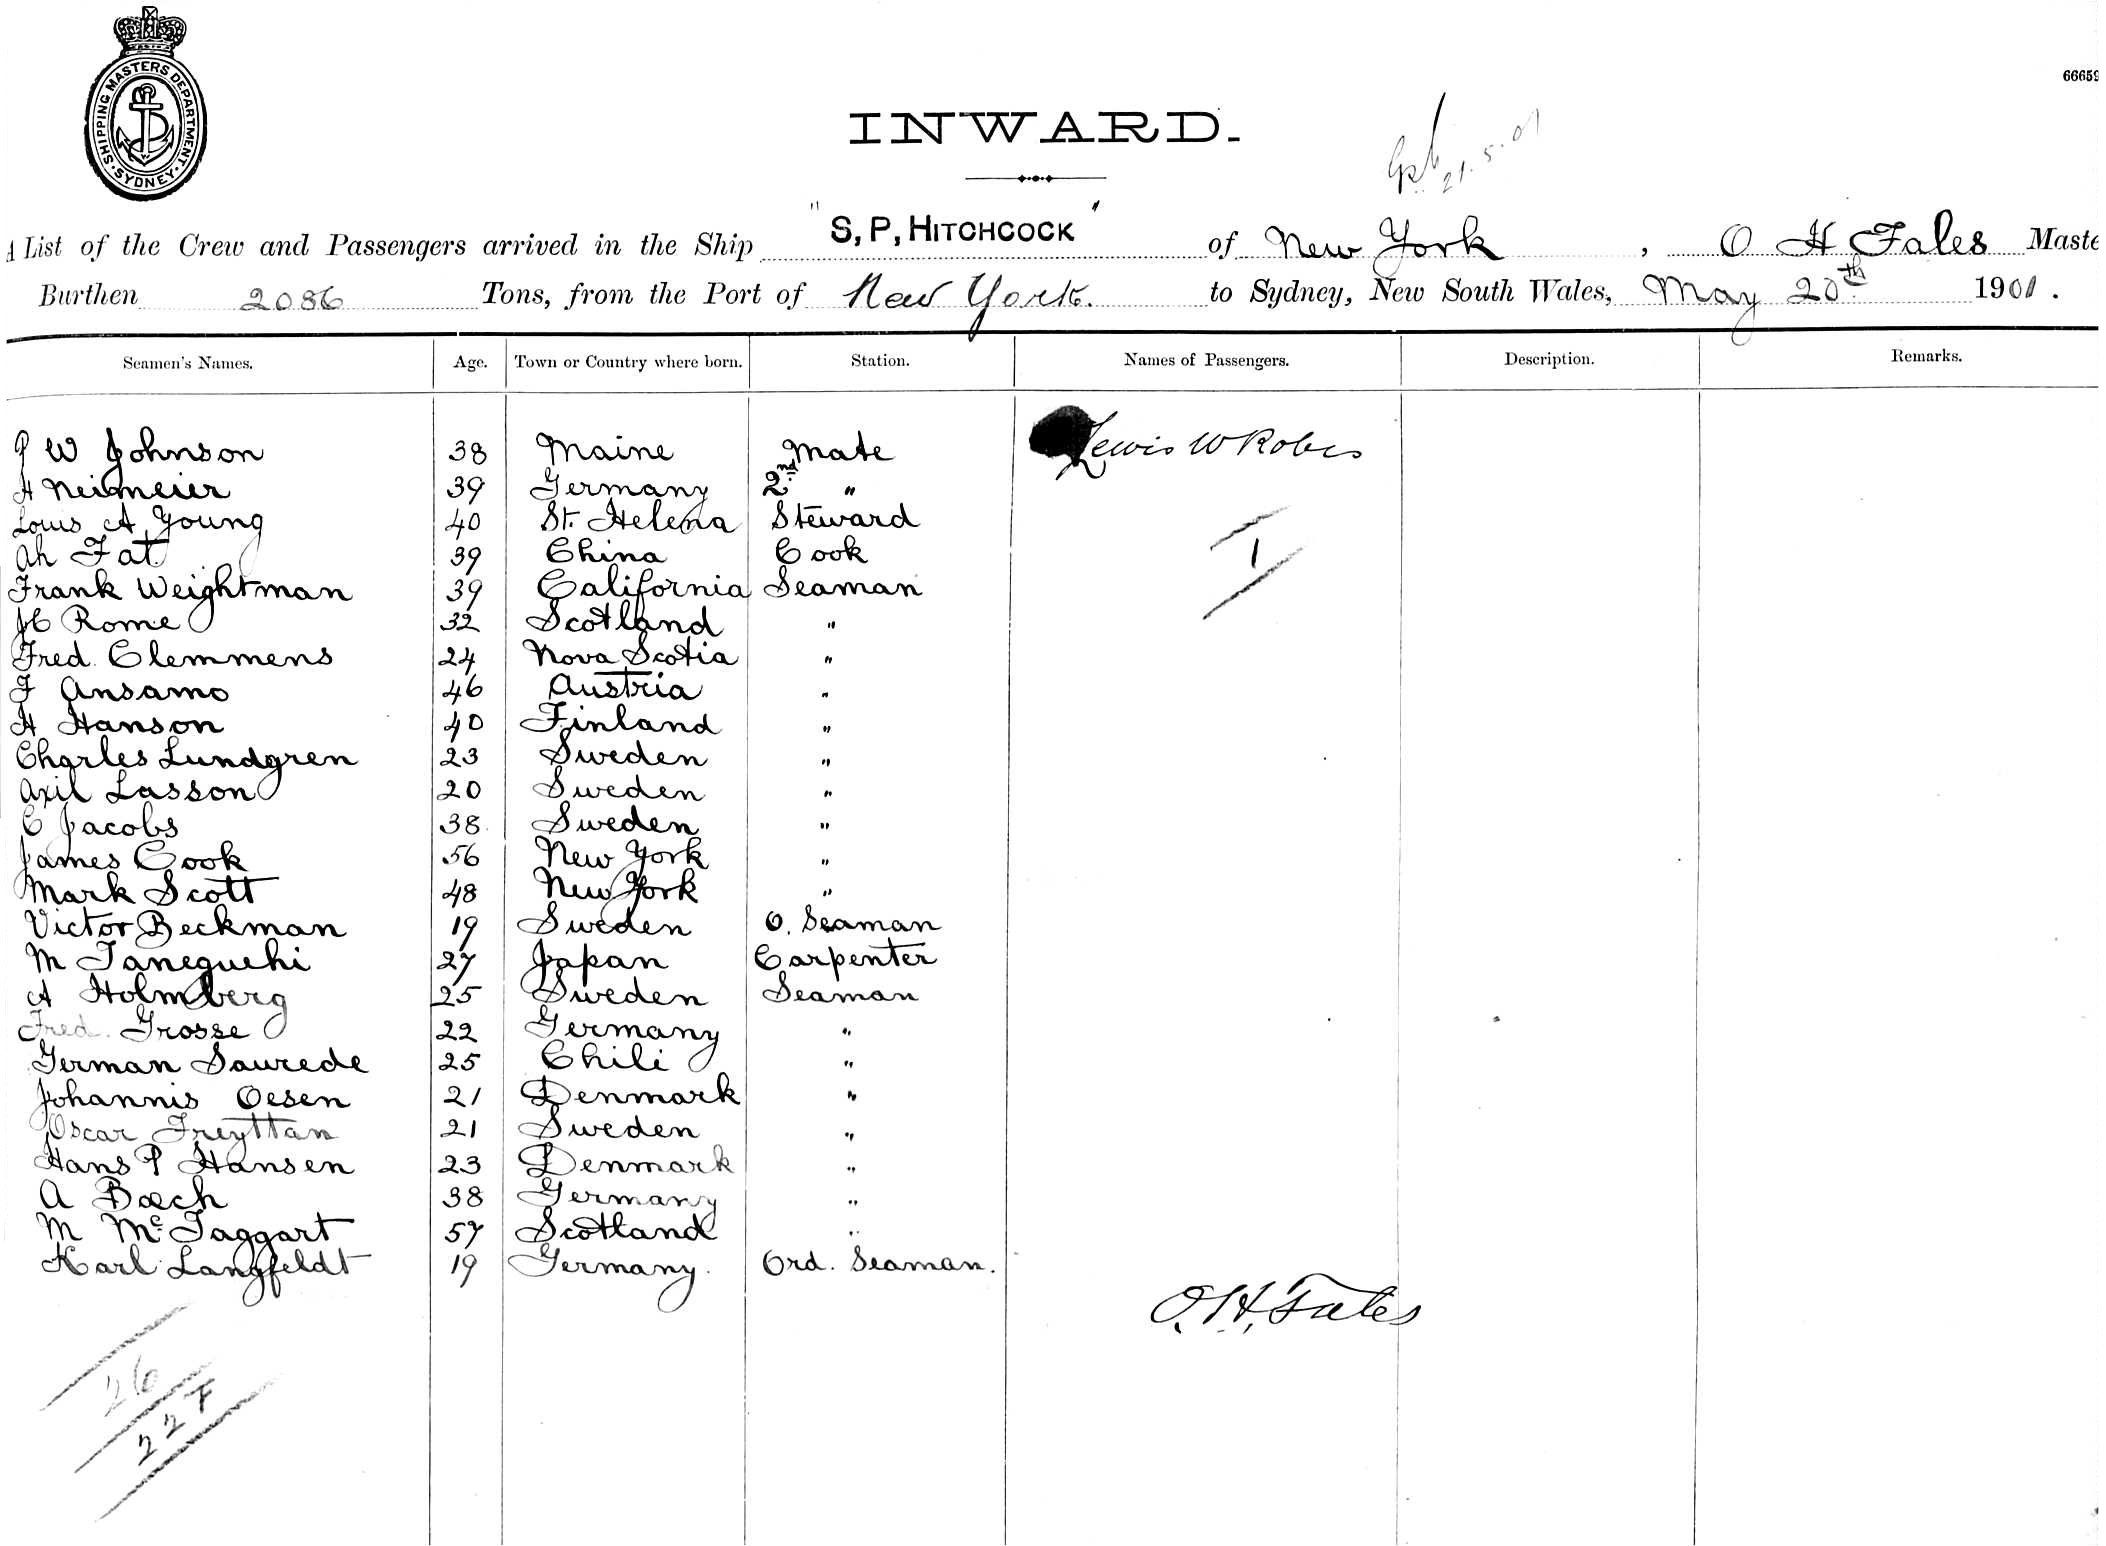 SHIPPING MASTERS DEPARTMENT
SYDNEY
66659
INWARD.
21.5.01
A List of the Crew and Passengers arrived in the Ship "S, P, HITCHCOCK" of New York, O H Fales Maste
Burthen 2086 Tons, from the Port of New York. to Sydney, New South Wales, May 20th 1901.
Seamen's Names. Age. Town or Country where born. Station. Names of Passengers. Description. Remarks.
P W Johnson 38 Maine Mate Lewis W
H Neigmeier 39 Germany 2nd "
Louis A Young 40 St. Helena Steward
Ah Fat 39 China Cook
1
Frank Weightman 39 California Seaman
Rome 32 Scotland "
Fred. Clemmens 24 Nova Scotia "
F Ansamo 46 Austria "
H Hanson 40 Finland "
Charles Lundgren 23 Sweden "
Axil Lasson 20 Sweden "
C Jacobs 38 Sweden "
James Cook 56 New York "
Mark Scott 48 New York "
Victor Beckman 19 Sweden O. Seaman
M Taneguchi 27 Japan Carpenter
A Holmberg 25 Sweden Seaman
Fred. Grosse 22 Germany "
German Saurede 25 Chili "
Johannis Oesen 21 Denmark "
Oscar Freyttan 21 Sweden "
Hans P Hansen 23 Denmark "
A Boech 38 Germany "
M McTaggart 57 Scotland "
Karl Langfeldt 19 Germany. Ord. Seaman.
O. H. Fales
26
227